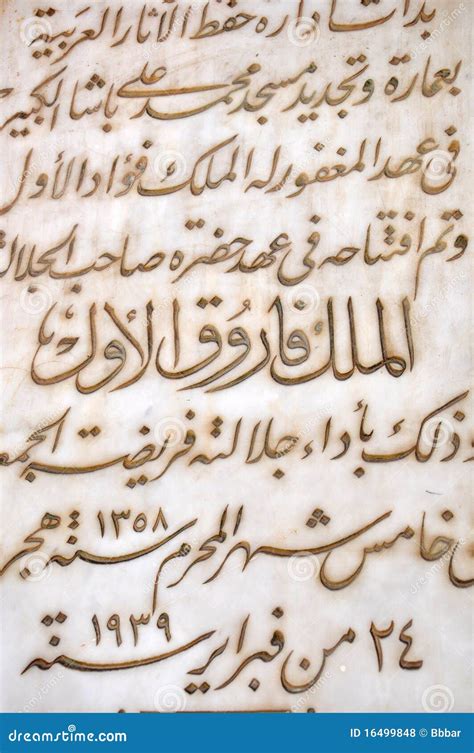 بدأت ادارة حفظ الآثار العربية
بعمارة وتجديد مسجد محمد على باشا الكبير
فى عهد المغفور له الملك فؤاد الأول
وتم افتتاحه فى عهد حضرة صاحب الجلالة
الملك فاروق الأول
وذلك بأداء جلالته فريضة
خامس شهر المحرم سنة ١٣٥٨
٢٤ من فبراير سنة ١٩٣٩
dreamstime.com ID 16499848 © Bbbar